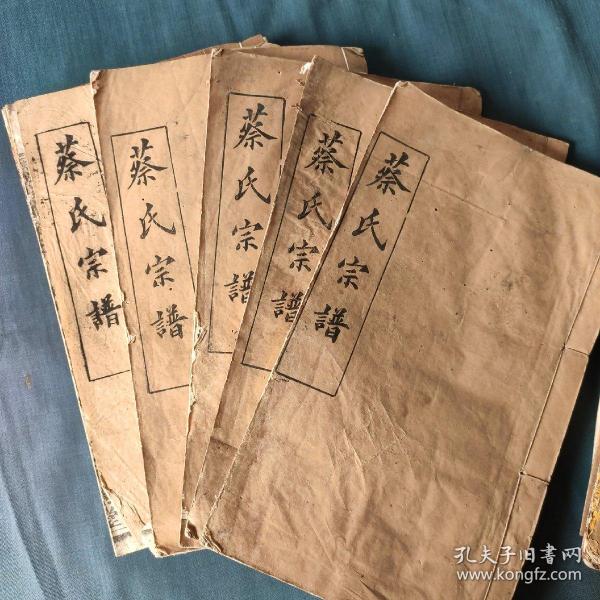 蔡氏宗譜
蔡氏宗譜
蔡氏宗譜
蔡氏宗譜
蔡氏宗譜
孔夫子旧書网
www.kongfz.com